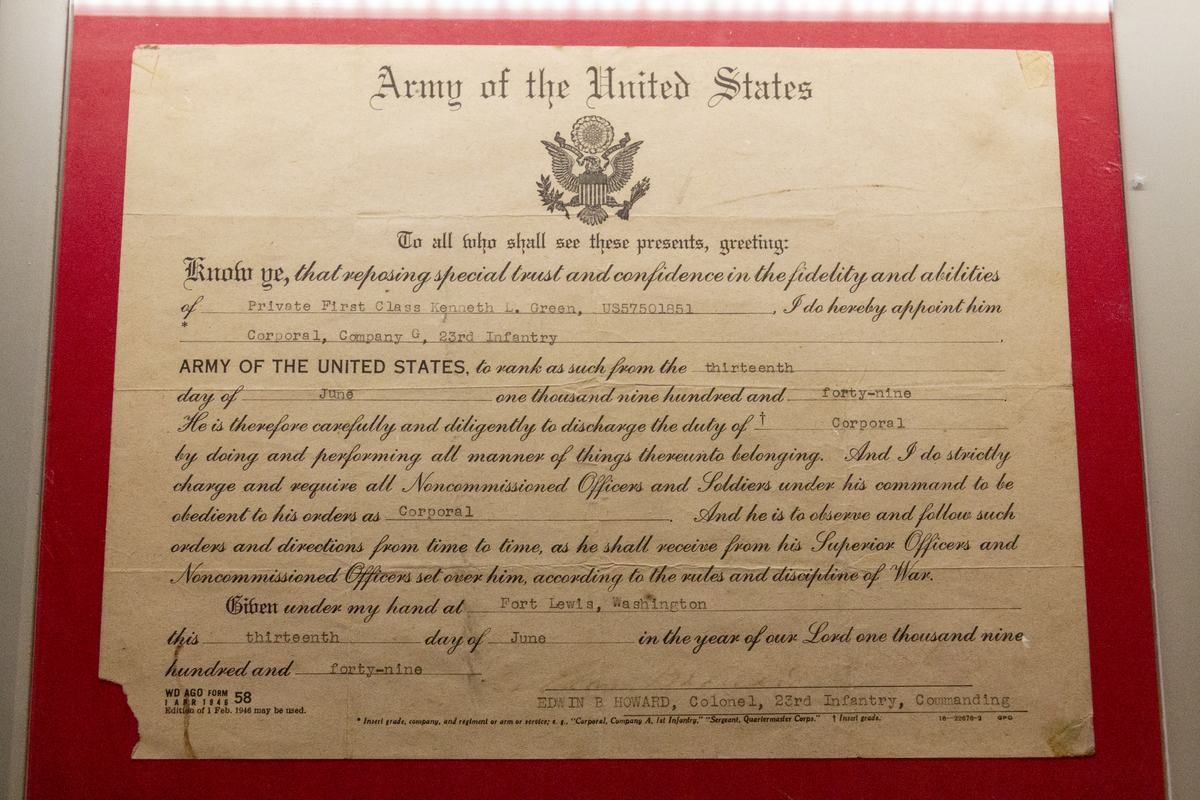 Army of the United States
To all who shall see these presents, greeting:
Know ye, that reposing special trust and confidence in the fidelity and abilities
of Private First Class Kenneth L. Green, US57501851, I do hereby appoint him
* Corporal, Company G, 23rd Infantry.
ARMY OF THE UNITED STATES, to rank as such from the thirteenth
day of June one thousand nine hundred and forty-nine.
He is therefore carefully and diligently to discharge the duty of † Corporal
by doing and performing all manner of things thereunto belonging. And I do strictly
charge and require all Noncommissioned Officers and Soldiers under his command to be
obedient to his orders as Corporal. And he is to observe and follow such
orders and directions from time to time, as he shall receive from his Superior Officers and
Noncommissioned Officers set over him, according to the rules and discipline of War.
Given under my hand at Fort Lewis, Washington
this thirteenth day of June in the year of our Lord one thousand nine
hundred and forty-nine
EDWIN B HOWARD, Colonel, 23rd Infantry, Commanding
WD AGO FORM 58
1 APR 1946
Edition of 1 Feb. 1946 may be used.
* Insert grade, company, and regiment or arm or service; e. g., "Corporal, Company A, 1st Infantry," "Sergeant, Quartermaster Corps." † Insert grade. 16—22676-2 GPO